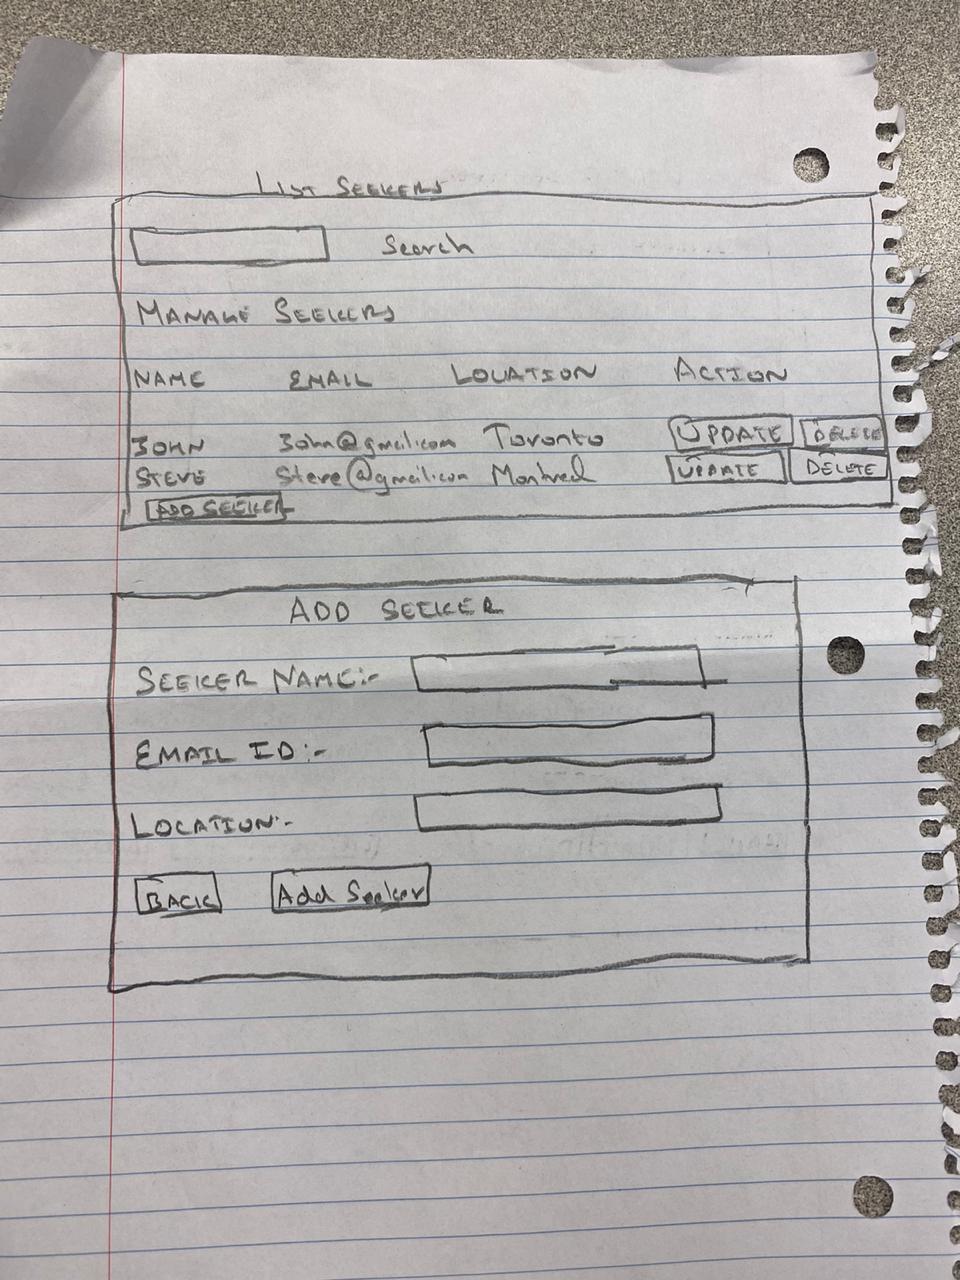 LIST SEEKERS
Search
MANAGE SEEKERS
NAME EMAIL LOUATION ACTION
JOHN John@gmail.com Toronto UPDATE DELETE
STEVE Steve@gmail.com Montreal UPDATE DELETE
ADD SEEKER
ADD SEEKER
SEEKER NAME:-
EMAIL ID:-
LOCATION:-
BACK Add Seeker